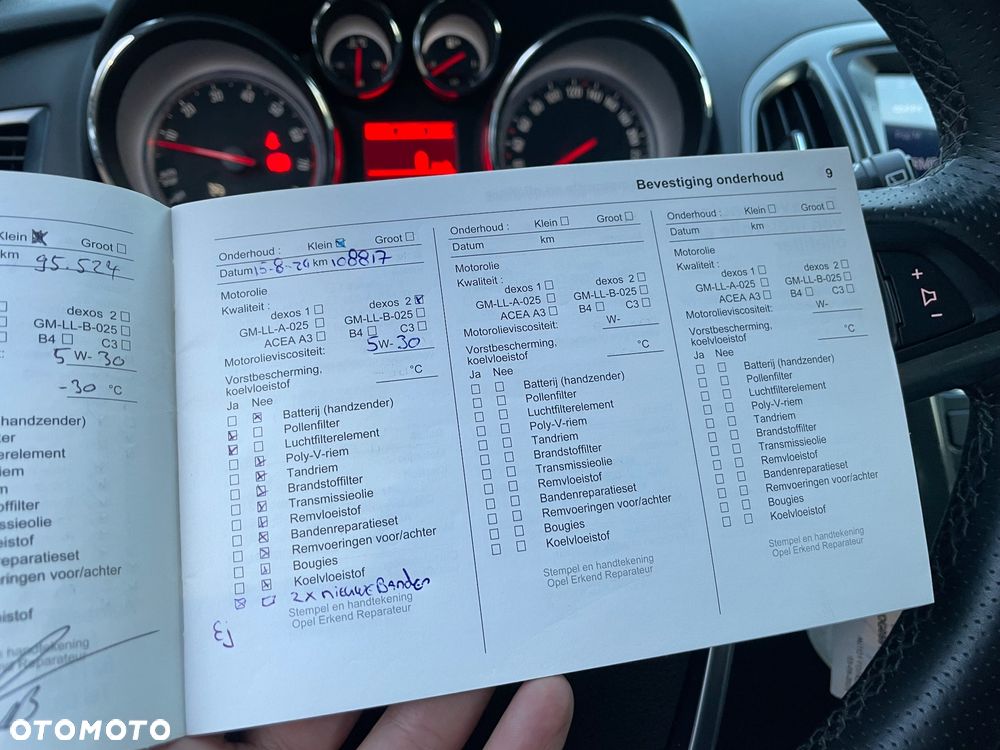 Bevestiging onderhoud 9
Klein Groot
km 95.524
dexos 2
GM-LL-B-025
B4 C3
5 W-30
-30 °C
handzender)
lterelement
riem
offilter
ssieolie
eistof
reparatieset
ringen voor/achter
istof
Onderhoud : Klein Groot
Datum 15-8-24 km 108817
Motorolie
Kwaliteit :
dexos 1 dexos 2
GM-LL-A-025 GM-LL-B-025
ACEA A3 B4 C3
Motorolieviscositeit: 5W-30
Vorstbescherming,
koelvloeistof °C
Ja Nee
Batterij (handzender)
Pollenfilter
Luchtfilterelement
Poly-V-riem
Tandriem
Brandstoffilter
Transmissieolie
Remvloeistof
Bandenreparatieset
Remvoeringen voor/achter
Bougies
Koelvloeistof
2x nieuwe Banden
Stempel en handtekening
Opel Erkend Reparateur
Onderhoud : Klein Groot
Datum km
Motorolie
Kwaliteit :
dexos 1 dexos 2
GM-LL-A-025 GM-LL-B-025
ACEA A3 B4 C3
Motorolieviscositeit: W-
Vorstbescherming,
koelvloeistof °C
Ja Nee
Batterij (handzender)
Pollenfilter
Luchtfilterelement
Poly-V-riem
Tandriem
Brandstoffilter
Transmissieolie
Remvloeistof
Bandenreparatieset
Remvoeringen voor/achter
Bougies
Koelvloeistof
Stempel en handtekening
Opel Erkend Reparateur
Onderhoud : Klein Groot
Datum km
Motorolie
Kwaliteit :
dexos 1 dexos 2
GM-LL-A-025 GM-LL-B-025
ACEA A3 B4 C3
Motorolieviscositeit: W-
Vorstbescherming,
koelvloeistof °C
Ja Nee
Batterij (handzender)
Pollenfilter
Luchtfilterelement
Poly-V-riem
Tandriem
Brandstoffilter
Transmissieolie
Remvloeistof
Bandenreparatieset
Remvoeringen voor/achter
Bougies
Koelvloeistof
Stempel en handtekening
Opel Erkend Reparateur
OTOMOTO